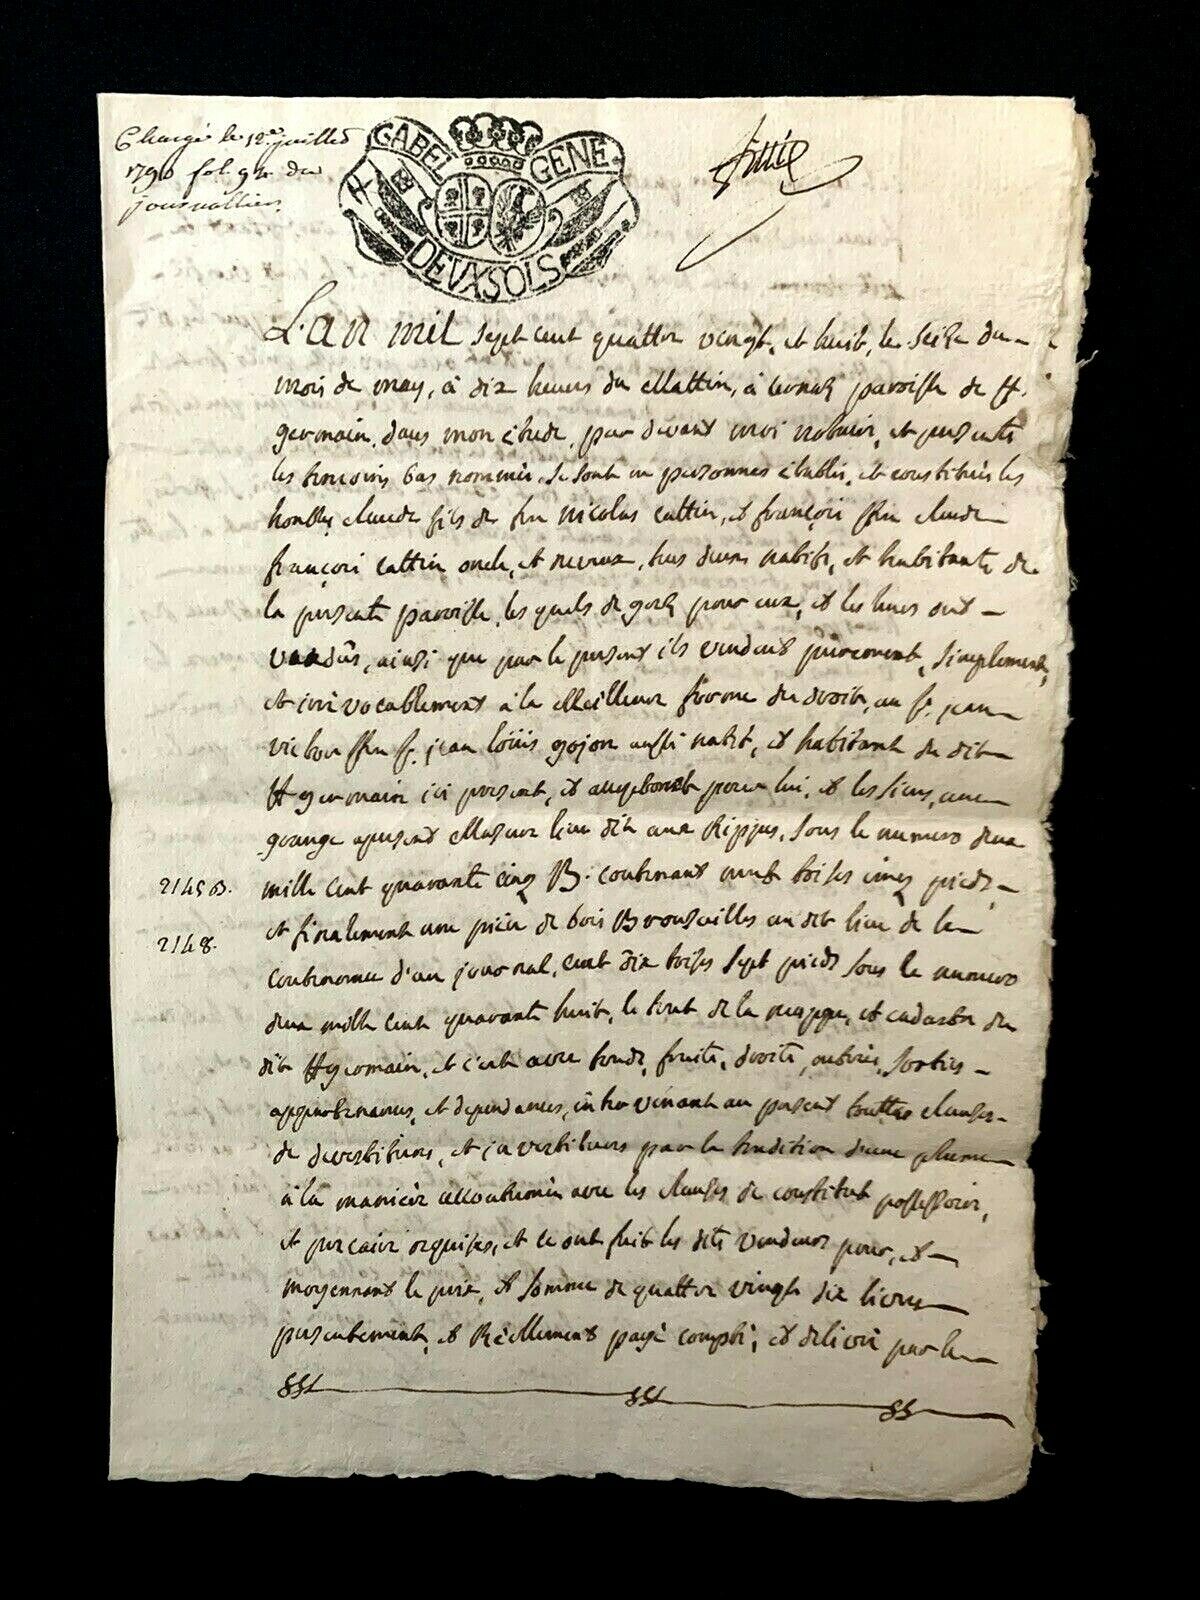 Chargé le 12e juillet
1790 fol. 94 du
journallier.
GABEL GENE
DEUX SOLS
L'an mil sept cent quattre vingt, et huit, le seize du
mois de may, à dix heures du mattin, à paroisse de st
germain, dans mon étude, par devant moi notaire, et presents
les temoins bas nommés, se sont en personnes établis, et constitués les
honbles claude fils de feu nicolas cattin, et françois ffeu claude
françois cattin oncle, et neveux, tous deux natifs, et habitants de
la presente paroisse, les quels de gré pour eux, et les leurs ont
vendûs, ainsi que par le present ils vendent purement, simplement,
et irrevocablement à la meilleure forme du droit, au sr. jean
victor ffeu sr. jean loüis gojon aussi natif, et habitant du dit
st germain ici present, et acceptant pour lui, et les siens, une
grange à present masure lieu dit aux Rippes, sous le numero deux
2145 B.
mille cent quarante cinq B. contenant neuf toises cinq pieds
et finalement une pièce de bois Broussailles au dit lieu de la
2148.
contenance d'un journal, cent dix toises sept pieds sous le numero
deux mille cent quarante huit, le tout de la mappe, et cadastre du
dit st germain, et c'est avec fonds, fruits, droits, entrées, sorties
appartenances, et dependances, intervenant au present touttes clauses
de devestitures, et investitures par la tradition d'une plume
à la manière accoutumée avec les clauses de constitut possessoire,
et precaire requises, et ce ont fait les dits vendeurs pour, et
moyennant le prix, et somme de quattre vingt dix livres
presentement, et Réellement payé compté, et delivré par le